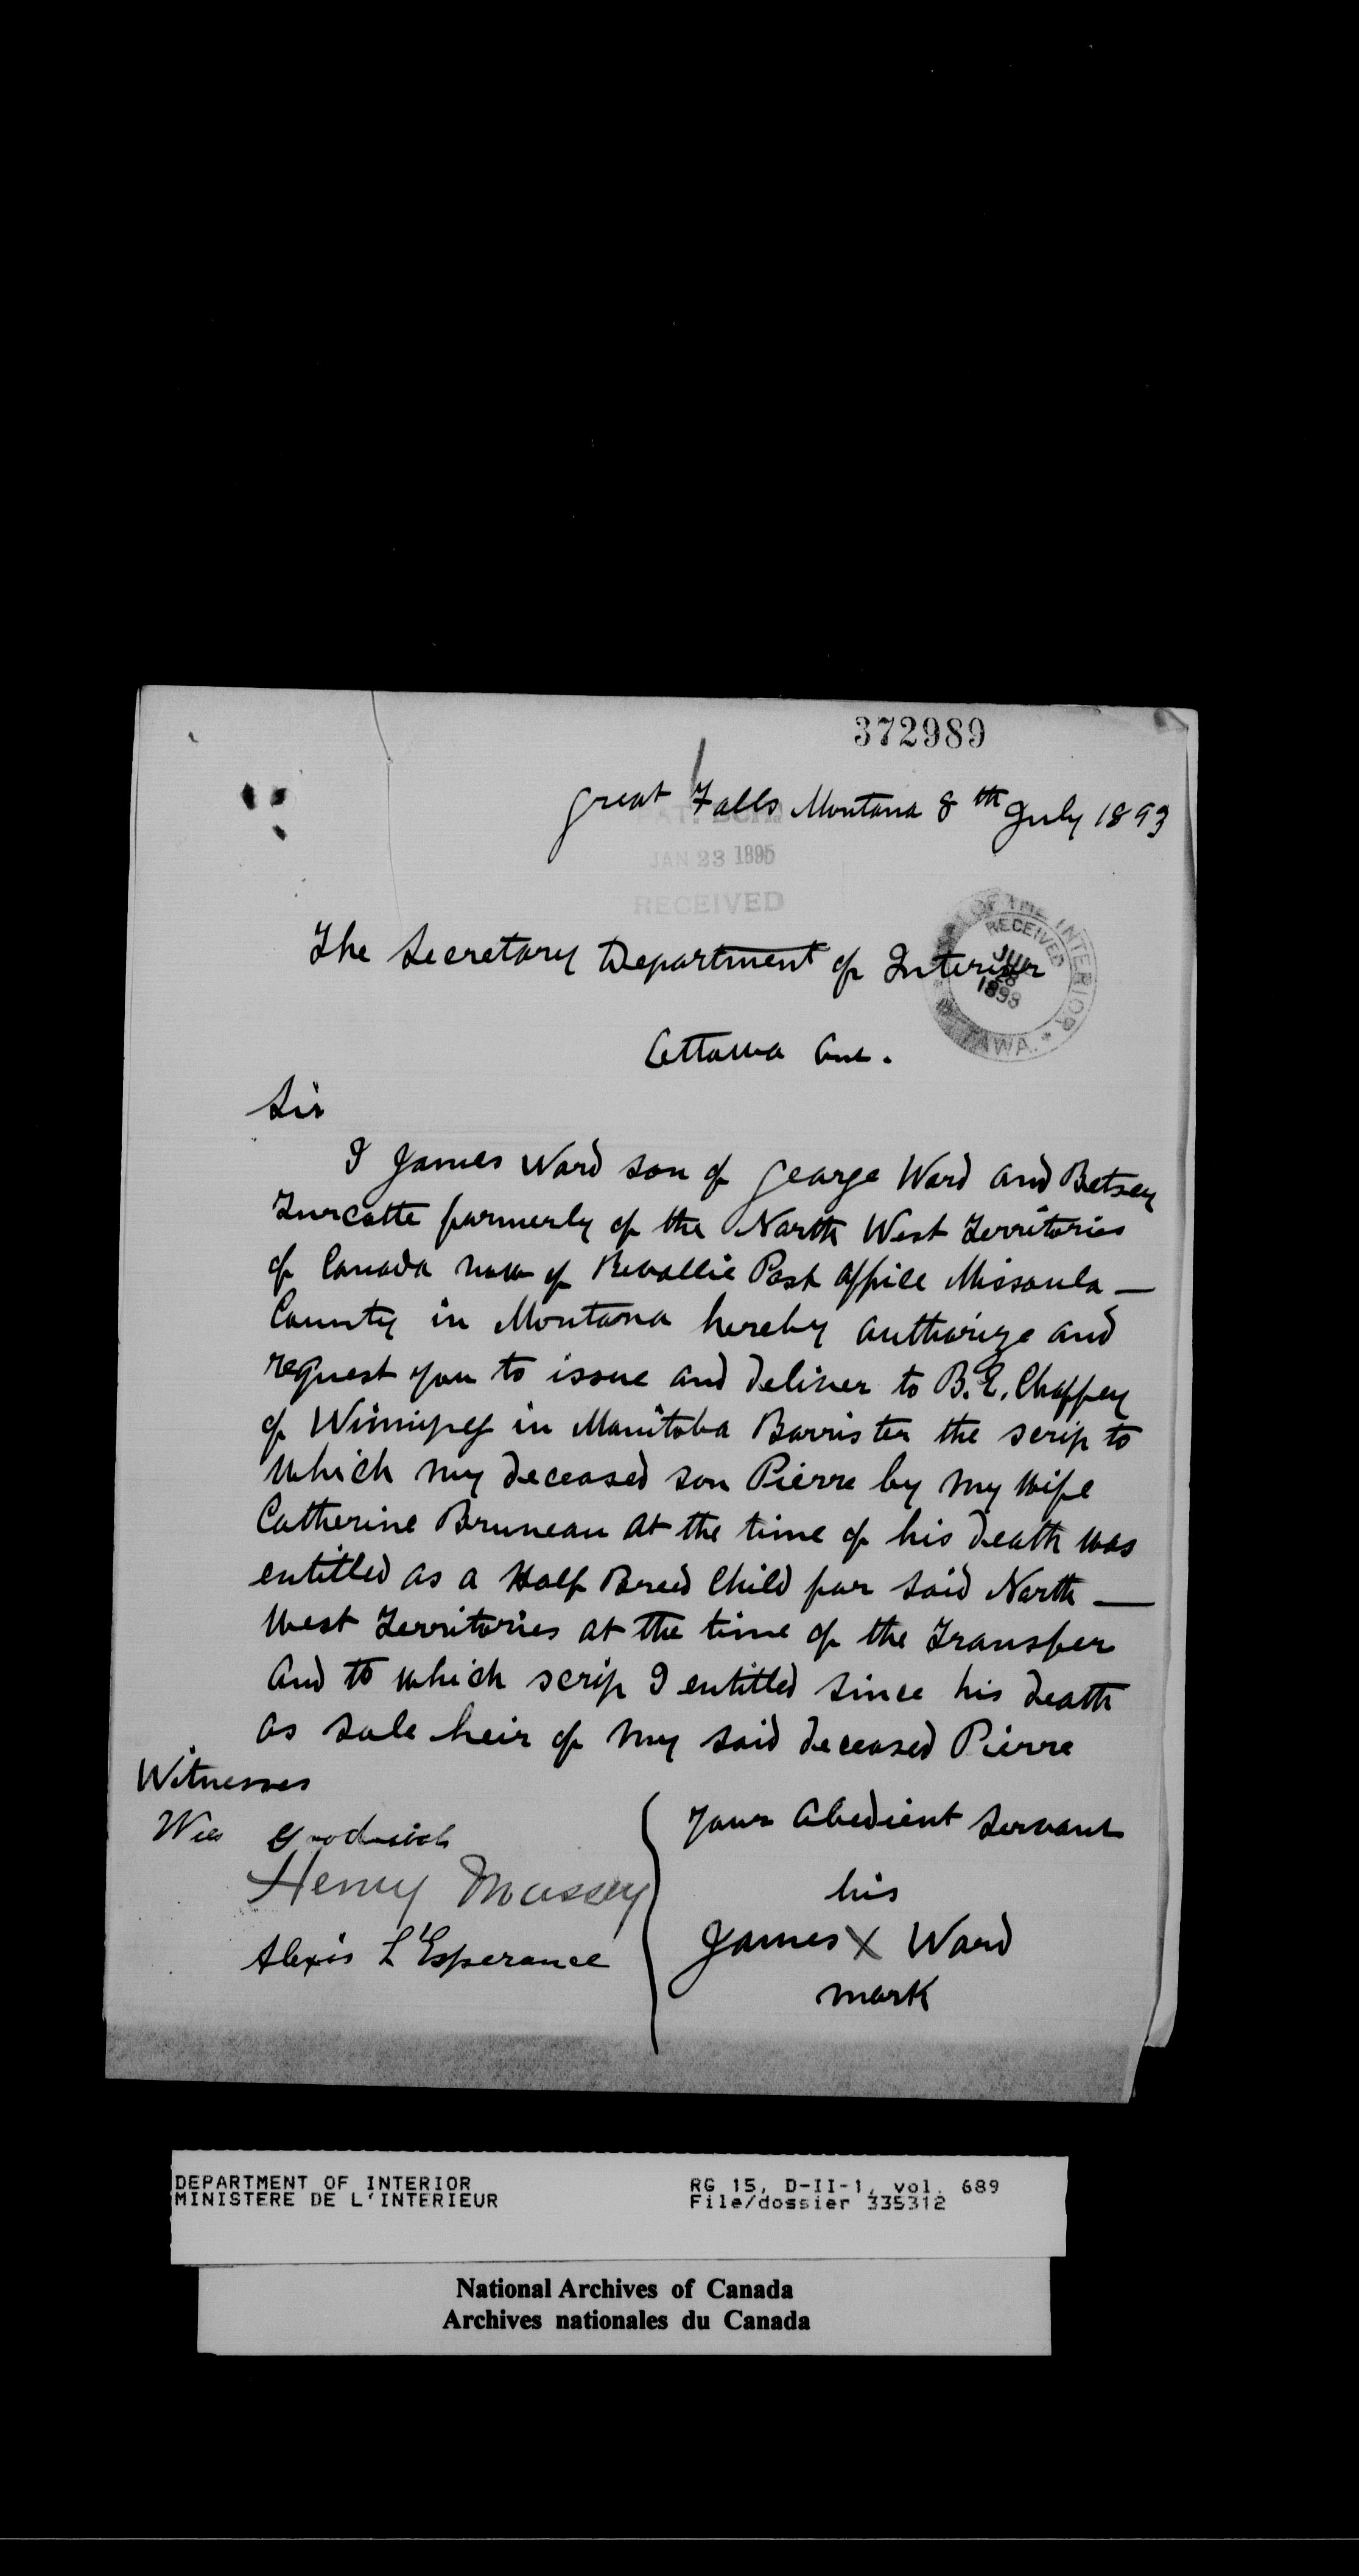 372989
Great Falls Montana 8th July 1893
JAN 23 1895
RECEIVED
The Secretary Department of Interior
OF THE INTERIOR
RECEIVED
JUL
28
1893
Ottawa Ont.
Sir
I James Ward son of George Ward and Betsey
Turcotte formerly of the North West Territories
of Canada now of Revallie Post Office Missoula —
County in Montana hereby authorize and
request you to issue and deliver to B. E. Chaffey
of Winnipeg in Manitoba Barrister the scrip to
which my deceased son Pierre by my wife
Catherine Bruneau at the time of his death was
entitled as a Half Breed Child for said North —
West Territories at the time of the Transfer
and to which scrip I entitled since his death
as sole heir of my said deceased Pierre
Witnesses
Your Obedient Servant
Henry Massey
his
James X Ward
Alexis L'Esperance
mark
DEPARTMENT OF INTERIOR
MINISTERE DE L'INTERIEUR
RG 15, D-II-1, vol. 689
File/dossier 335312
National Archives of Canada
Archives nationales du Canada